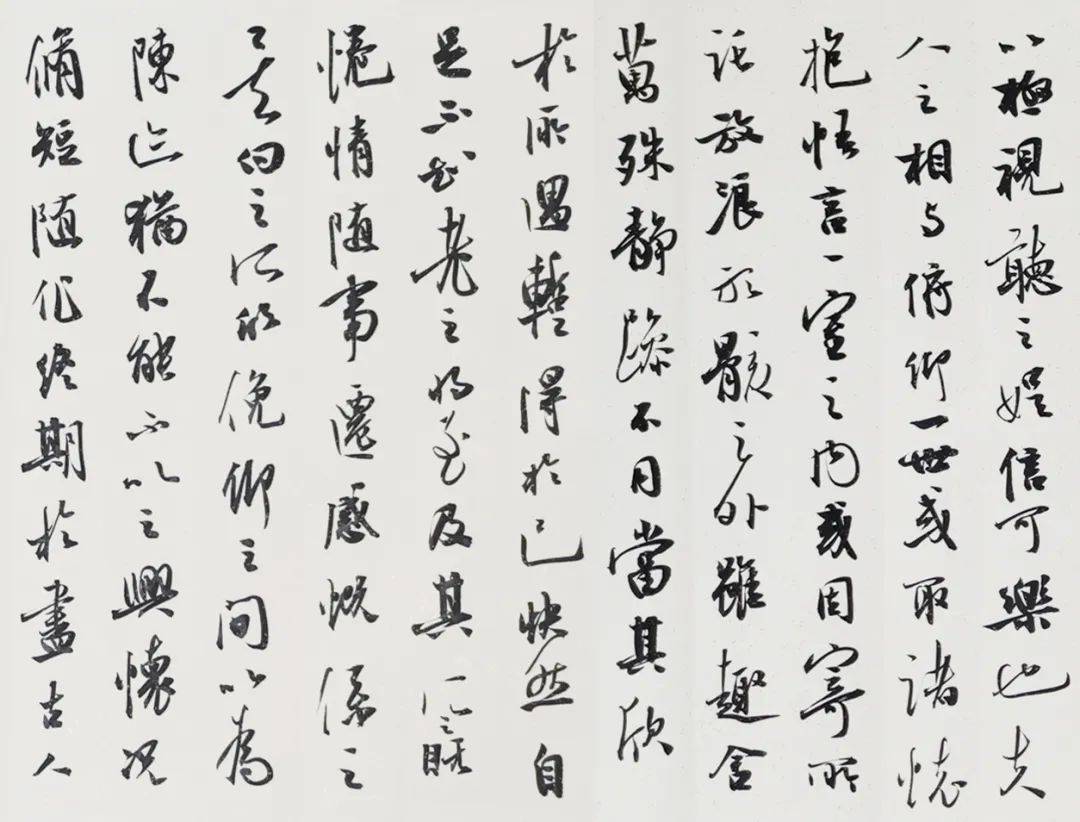 以極視聽之娛信可樂也夫
人之相与俯仰一世或取諸懷
抱悟言一室之内或因寄所
託放浪形骸之外雖趣舍
萬殊靜躁不同當其欣
於所遇暫得於己快然自
足不知老之將至及其所之既
惓情隨事遷感慨係之
矣向之所欣俛仰之間以為
陳迹猶不能不以之興懷況
脩短隨化終期於盡古人